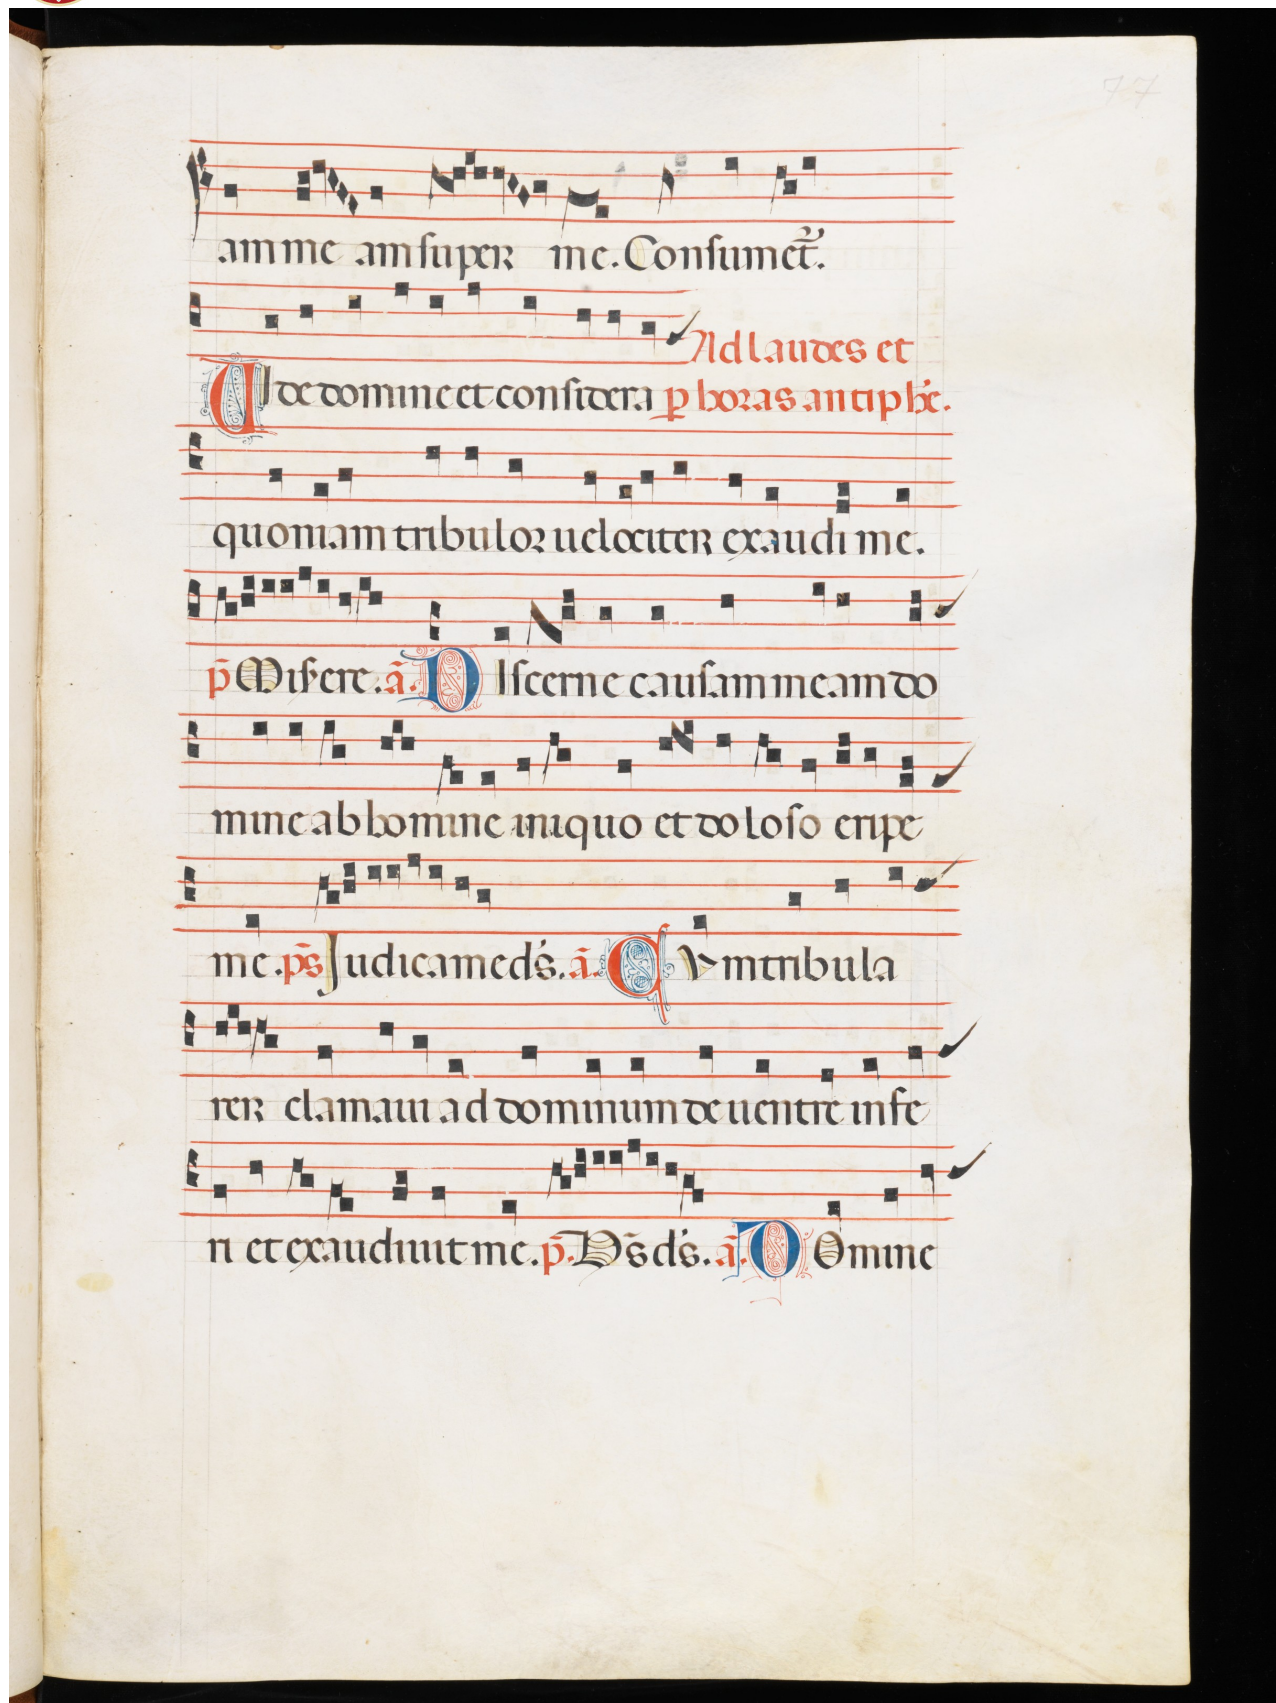 77
am me am super me. Consumet̃.
Ad laudes et
Uide domine et considera p̱ horas antiphẽ.
quoniam tribulor uelociter exaudi me.
p̃ Miẜere. ã. DIscerne causam meam do
mine ab homine iniquo et doloso eripe
me. p̃s Iudica me ds̃. ã. CUm tribula
rer clamaui ad dominum de uentre infe
ri et exaudiuit me. p̃. Ds̃ ds̃. ã. DOmine